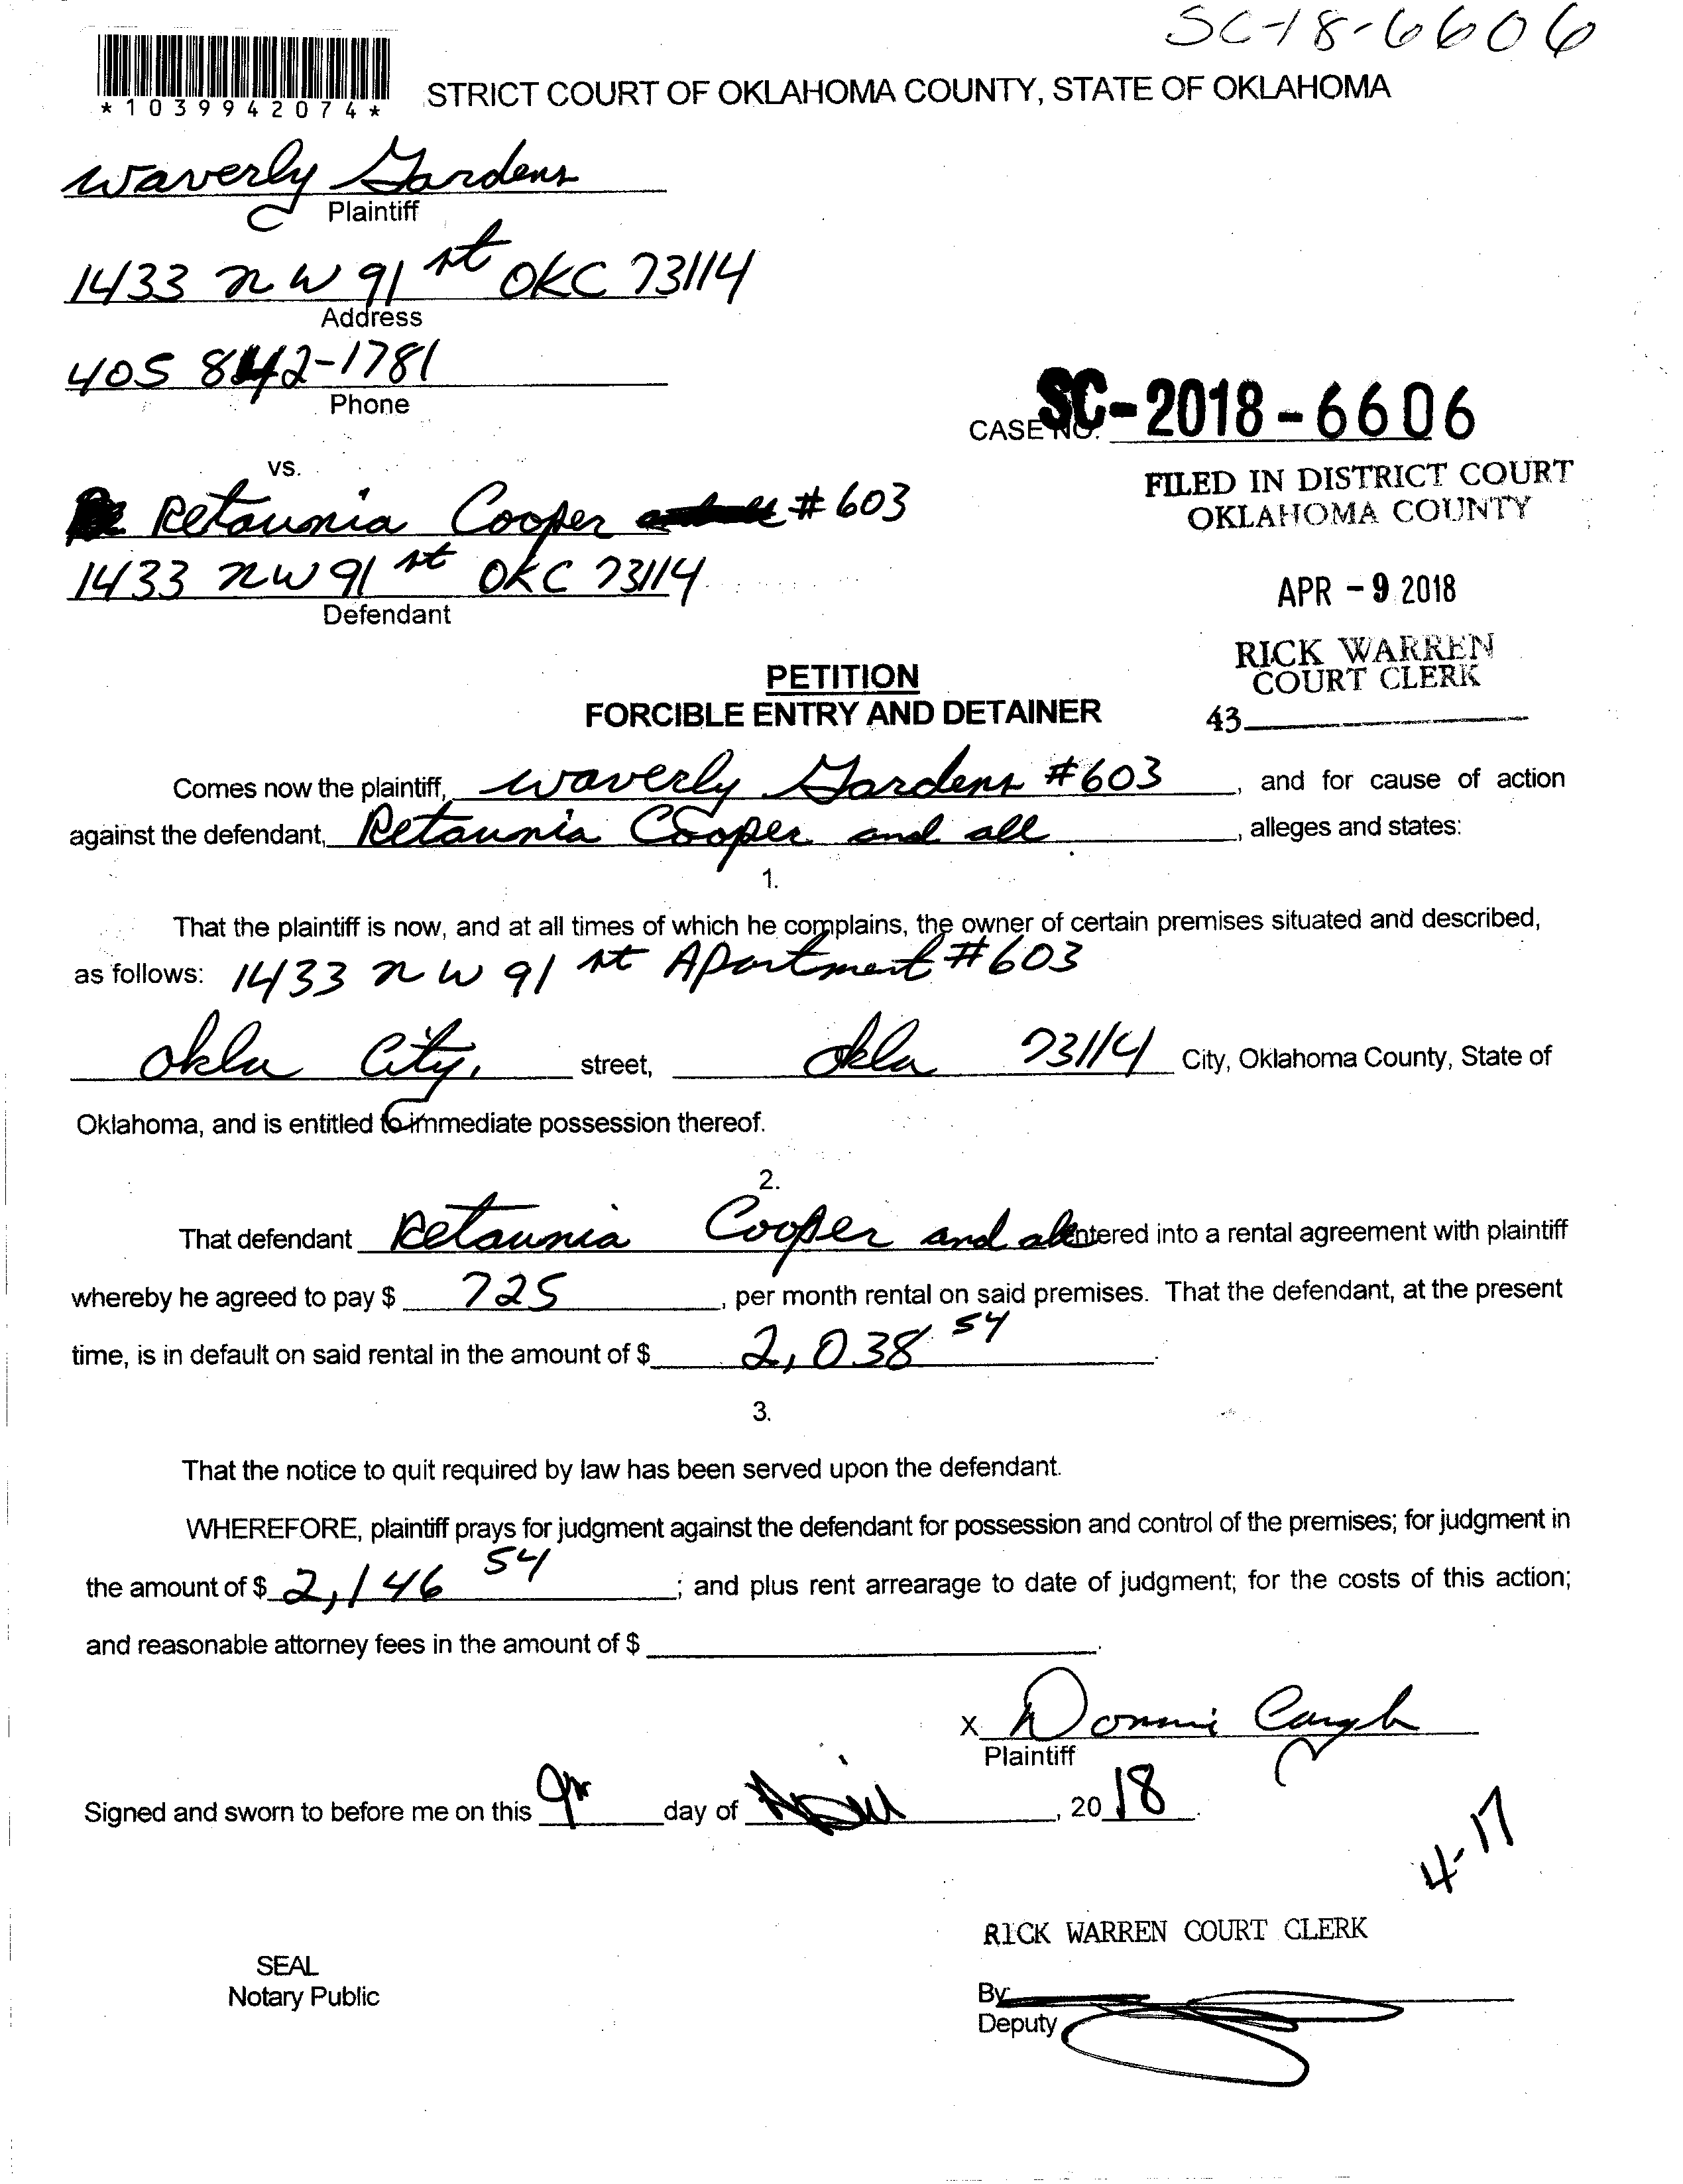 SC-18-6606
*1039942074*
STRICT COURT OF OKLAHOMA COUNTY, STATE OF OKLAHOMA
Waverly Gardens
Plaintiff
1433 NW 91 st OKC 73114
Address
405 842-1781
Phone
CASE NO. SC-2018-6606
vs.
FILED IN DISTRICT COURT
OKLAHOMA COUNTY
Retaunia Cooper #603
1433 NW 91 st OKC 73114
Defendant
APR - 9 2018
RICK WARREN
COURT CLERK
43
PETITION
FORCIBLE ENTRY AND DETAINER
Comes now the plaintiff, Waverly Gardens #603, and for cause of action
against the defendant, Retaunia Cooper and all, alleges and states:
1.
That the plaintiff is now, and at all times of which he complains, the owner of certain premises situated and described,
as follows: 1433 NW 91 st Apartment #603
Okla City, street, Okla 73114 City, Oklahoma County, State of
Oklahoma, and is entitled to immediate possession thereof.
2.
That defendant Retaunia Cooper and all entered into a rental agreement with plaintiff
whereby he agreed to pay $ 725, per month rental on said premises. That the defendant, at the present
time, is in default on said rental in the amount of $ 2,038 54.
3.
That the notice to quit required by law has been served upon the defendant.
WHEREFORE, plaintiff prays for judgment against the defendant for possession and control of the premises; for judgment in
the amount of $ 2,146 54; and plus rent arrearage to date of judgment; for the costs of this action;
and reasonable attorney fees in the amount of $.
X Donni
Plaintiff
Signed and sworn to before me on this 9th day of April, 2018.
4-17
RICK WARREN COURT CLERK
SEAL
Notary Public
By:
Deputy